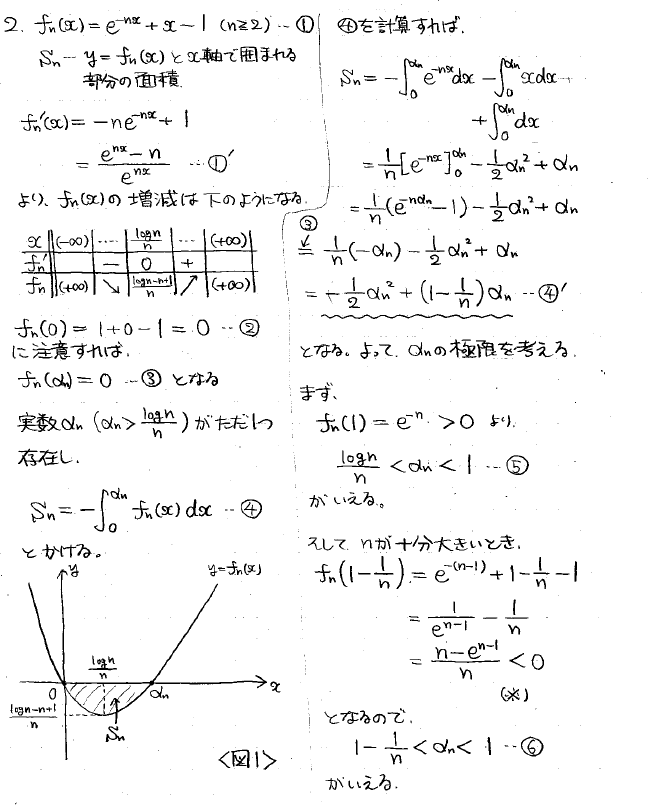 2. fn(x)=e^{-nx}+x-1 (n≧2) … ①
Sn … y=fn(x) と x軸で囲まれる
部分の面積
fn'(x)=-ne^{-nx}+1
=\frac{e^{nx}-n}{e^{nx}} … ①'
より、fn(x)の増減は下のようになる.
x | (-∞) | …… | \frac{logn}{n} | … | (+∞)
fn' | | - | 0 | + |
fn | (+∞) | ↘ | \frac{logn-n+1}{n} | ↗ | (+∞)
fn(0)=1+0-1=0 … ②
に注意すれば、
fn(αn)=0 … ③ となる
実数αn (αn>\frac{logn}{n}) がただ1つ
存在し、
Sn=-∫_0^{αn} fn(x)dx … ④
とかける。
y
y=fn(x)
\frac{logn}{n}
0
αn
x
\frac{logn-n+1}{n}
Sn
<図1>
④を計算すれば、
Sn=-∫_0^{αn} e^{-nx}dx-∫_0^{αn} xdx+
+∫_0^{αn} dx
=\frac{1}{n}[e^{-nx}]_0^{αn}-\frac{1}{2}αn^2+αn
=\frac{1}{n}(e^{-nαn}-1)-\frac{1}{2}αn^2+αn
③
↙
=\frac{1}{n}(-αn)-\frac{1}{2}αn^2+αn
=-\frac{1}{2}αn^2+(1-\frac{1}{n})αn … ④'
となる。よって、αnの極限を考える.
まず、
fn(1)=e^{-n}>0 より、
\frac{logn}{n}<αn<1 … ⑤
がいえる。
そして、nが十分大きいとき、
fn(1-\frac{1}{n})=e^{-(n-1)}+1-\frac{1}{n}-1
=\frac{1}{e^{n-1}}-\frac{1}{n}
=\frac{n-e^{n-1}}{n}<0
(※)
となるので、
1-\frac{1}{n}<αn<1 … ⑥
がいえる.